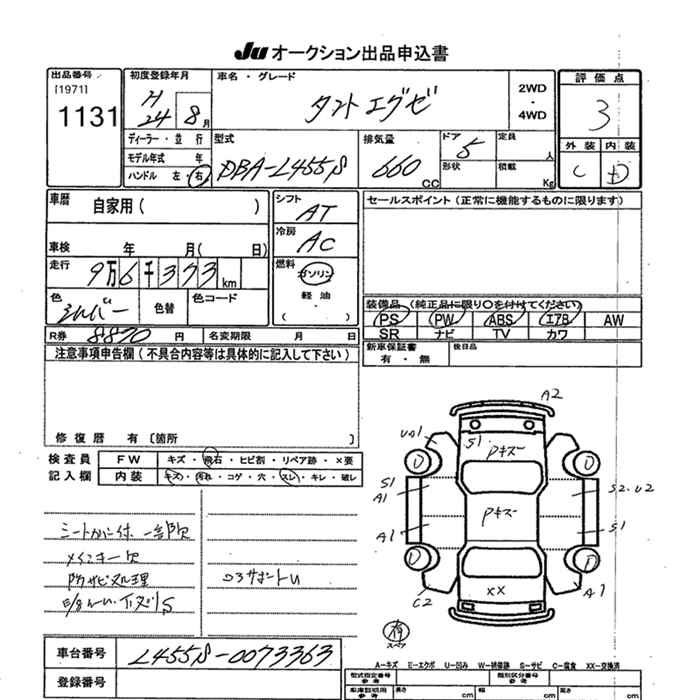 Ju オークション出品申込書
出品番号
[1971]
1131
初度登録年月
H
24 8月
車名・グレード
タント エグゼ
2WD
・
4WD
評価点
3
外装 内装
C D
ディーラー・並行
モデル年式 年
ハンドル 左・右
型式
DBA-L455S
排気量
660
CC
ドア
5
形状
定員
人
積載
Kg
車歴
自家用( )
車検 年 月( 日)
走行
9万6千373km
色
シルバー
色替
色コード
シフト
AT
冷房
AC
燃料
ガソリン
軽油
( )
セールスポイント(正常に機能するものに限ります)
装備品(純正品に限り○を付けてください)
PS PW ABS エアB AW
SR ナビ TV カワ
R券 8870 円 名変期限 月 日
新車保証書
有・無
後日品
注意事項申告欄(不具合内容等は具体的に記入して下さい)
修復歴 有〔箇所 〕
検査員
記入欄
FW キズ・飛石・ヒビ割・リペア跡・×要
内装 キズ・汚れ・コゲ・穴・スレ・キレ・破レ
シートカバー付 一部欠
メインキー欠
防サビ処理
コアサポートU
A2
UA1
S1
Pキズ
U
U
S1
A1
S2・U2
Pキズ
A1
S1
U
U
C2
XX
A1
スペア
A-キズ E-エクボ U-凹み W-補修跡 S-サビ C-腐食 XX-交換済
車台番号 L455S-0073363
登録番号
型式指定番号
参考
類別区分番号
参考
車庫証明用
参考
長さ cm
幅 cm
高さ cm